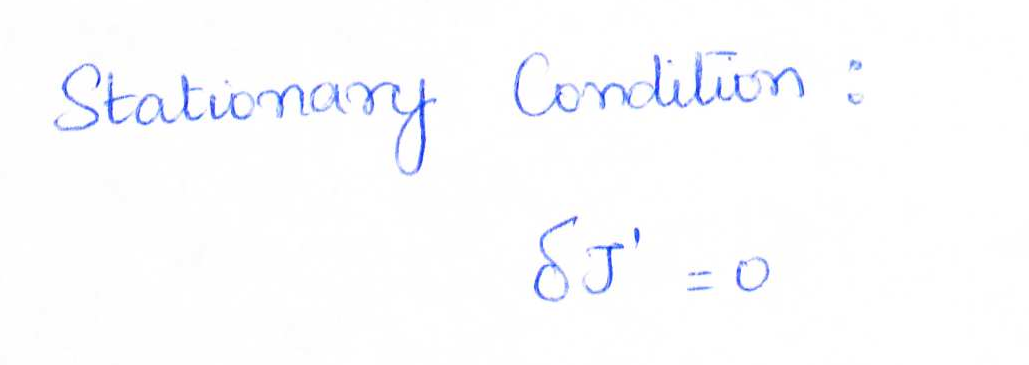 Stationary Condition :
δJ' = 0